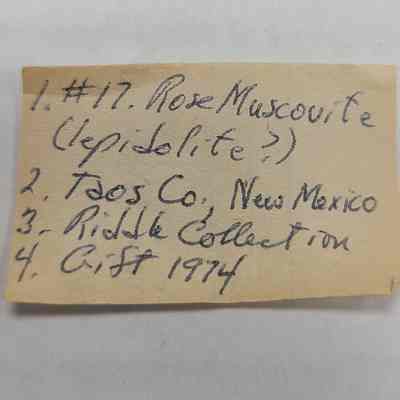 1. #17. Rose Muscovite
(lepidolite?)
2. Taos Co., New Mexico
3. Riddle Collection
4. Gift 1974